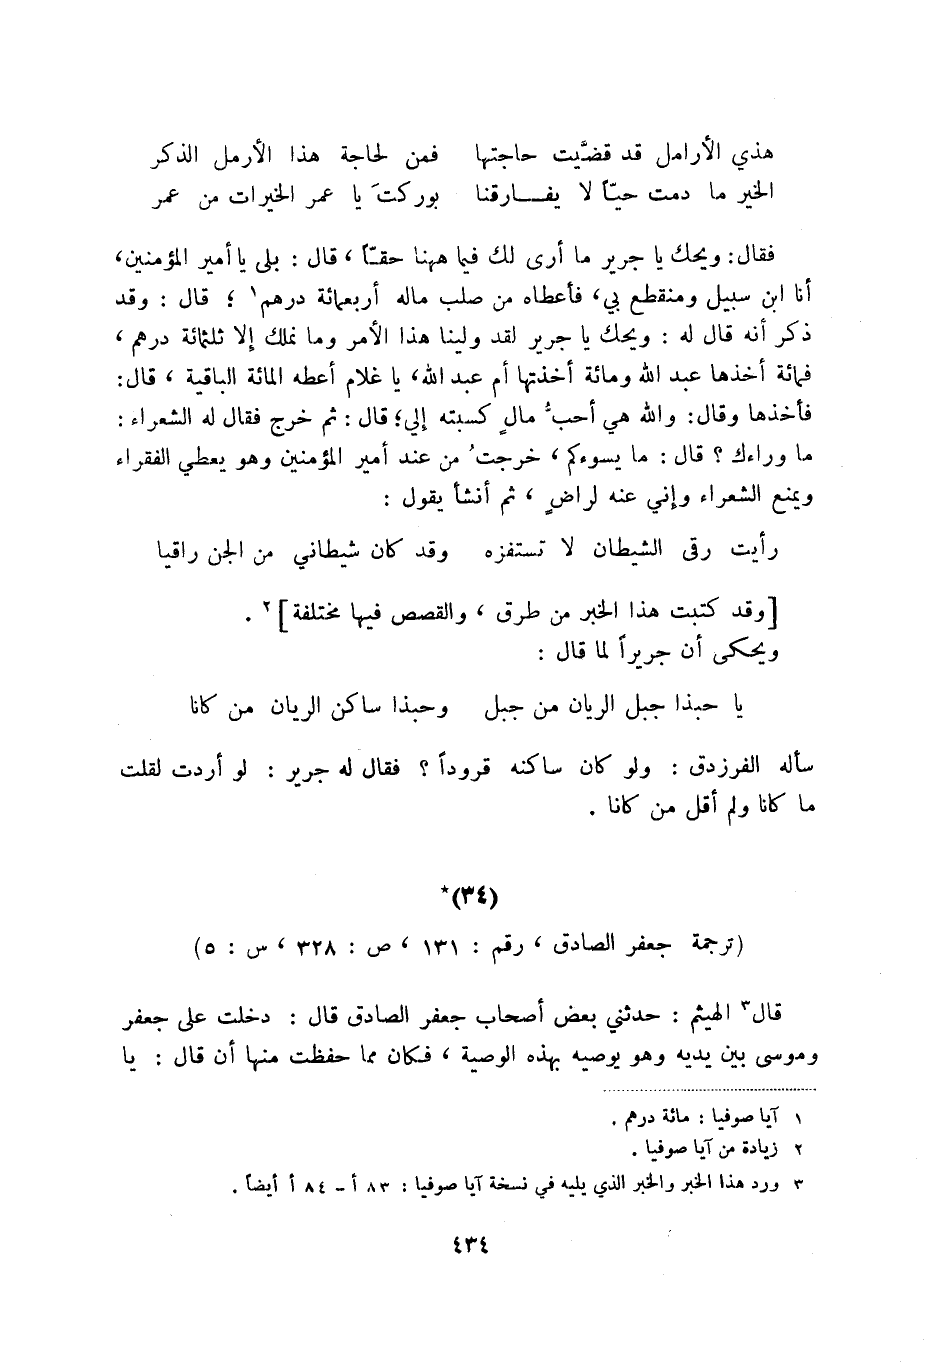 هذي الأرامل قد قضَّيت حاجتها فمن لحاجة هذا الأرمل الذكر
الخير ما دمت حيّاً لا يفـــارقنا بوركتَ يا عمر الخيرات من عمر
فقال: ويحك يا جرير ما أرى لك فيما ههنا حقـّاً ، قال : بلى يا أمير المؤمنين،
أنا ابن سبيل ومنقطع بي، فأعطاه من صلب ماله أربعمائة درهم١ ؛ قال : وقد
ذكر أنه قال له : ويحك يا جرير لقد ولينا هذا الأمر وما نملك إلا ثلثمائة درهم ،
فمائة أخذها عبد الله ومائة أخذتها أم عبد الله، يا غلام أعطه المائة الباقية ، قال:
فأخذها وقال: والله هي أحبُّ مالٍ كسبته إلي؛ قال : ثم خرج فقال له الشعراء :
ما وراءك ؟ قال : ما يسوءكم ، خرجتُ من عند أمير المؤمنين وهو يعطي الفقراء
ويمنع الشعراء وإني عنه لراضٍ ، ثم أنشأ يقول :
رأيت رقى الشيطان لا تستفزه وقد كان شيطاني من الجن راقيا
[وقد كتبت هذا الخبر من طرق ، والقصص فيها مختلفة]٢ .
ويحكى أن جريراً لما قال :
يا حبذا جبل الريان من جبل وحبذا ساكن الريان من كانا
سأله الفرزدق : ولو كان ساكنه قروداً ؟ فقال له جرير : لو أردت لقلت
ما كانا ولم أقل من كانا .
(٣٤)*
(ترجمة جعفر الصادق ، رقم : ١٣١ ، ص : ٣٢٨ ، س : ٥)
قال٣ الهيثم : حدثني بعض أصحاب جعفر الصادق قال : دخلت على جعفر
وموسى بين يديه وهو يوصيه بهذه الوصية ، فكان مما حفظت منها أن قال : يا
١ آيا صوفيا : مائة درهم .
٢ زيادة من آيا صوفيا .
٣ ورد هذا الخبر والخبر الذي يليه في نسخة آيا صوفيا : ٨٣ أ - ٨٤ أ أيضاً .
٤٣٤